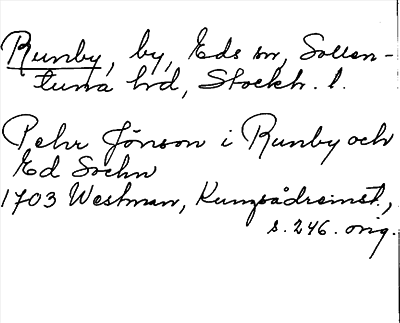 Runby, by, Eds sn, Sollen-
tuna hd, Stockh. l.
Pehr Jönson i Runby och
Ed Sochn
1703 Westman, Kungsådreinst.,
s. 246. orig.